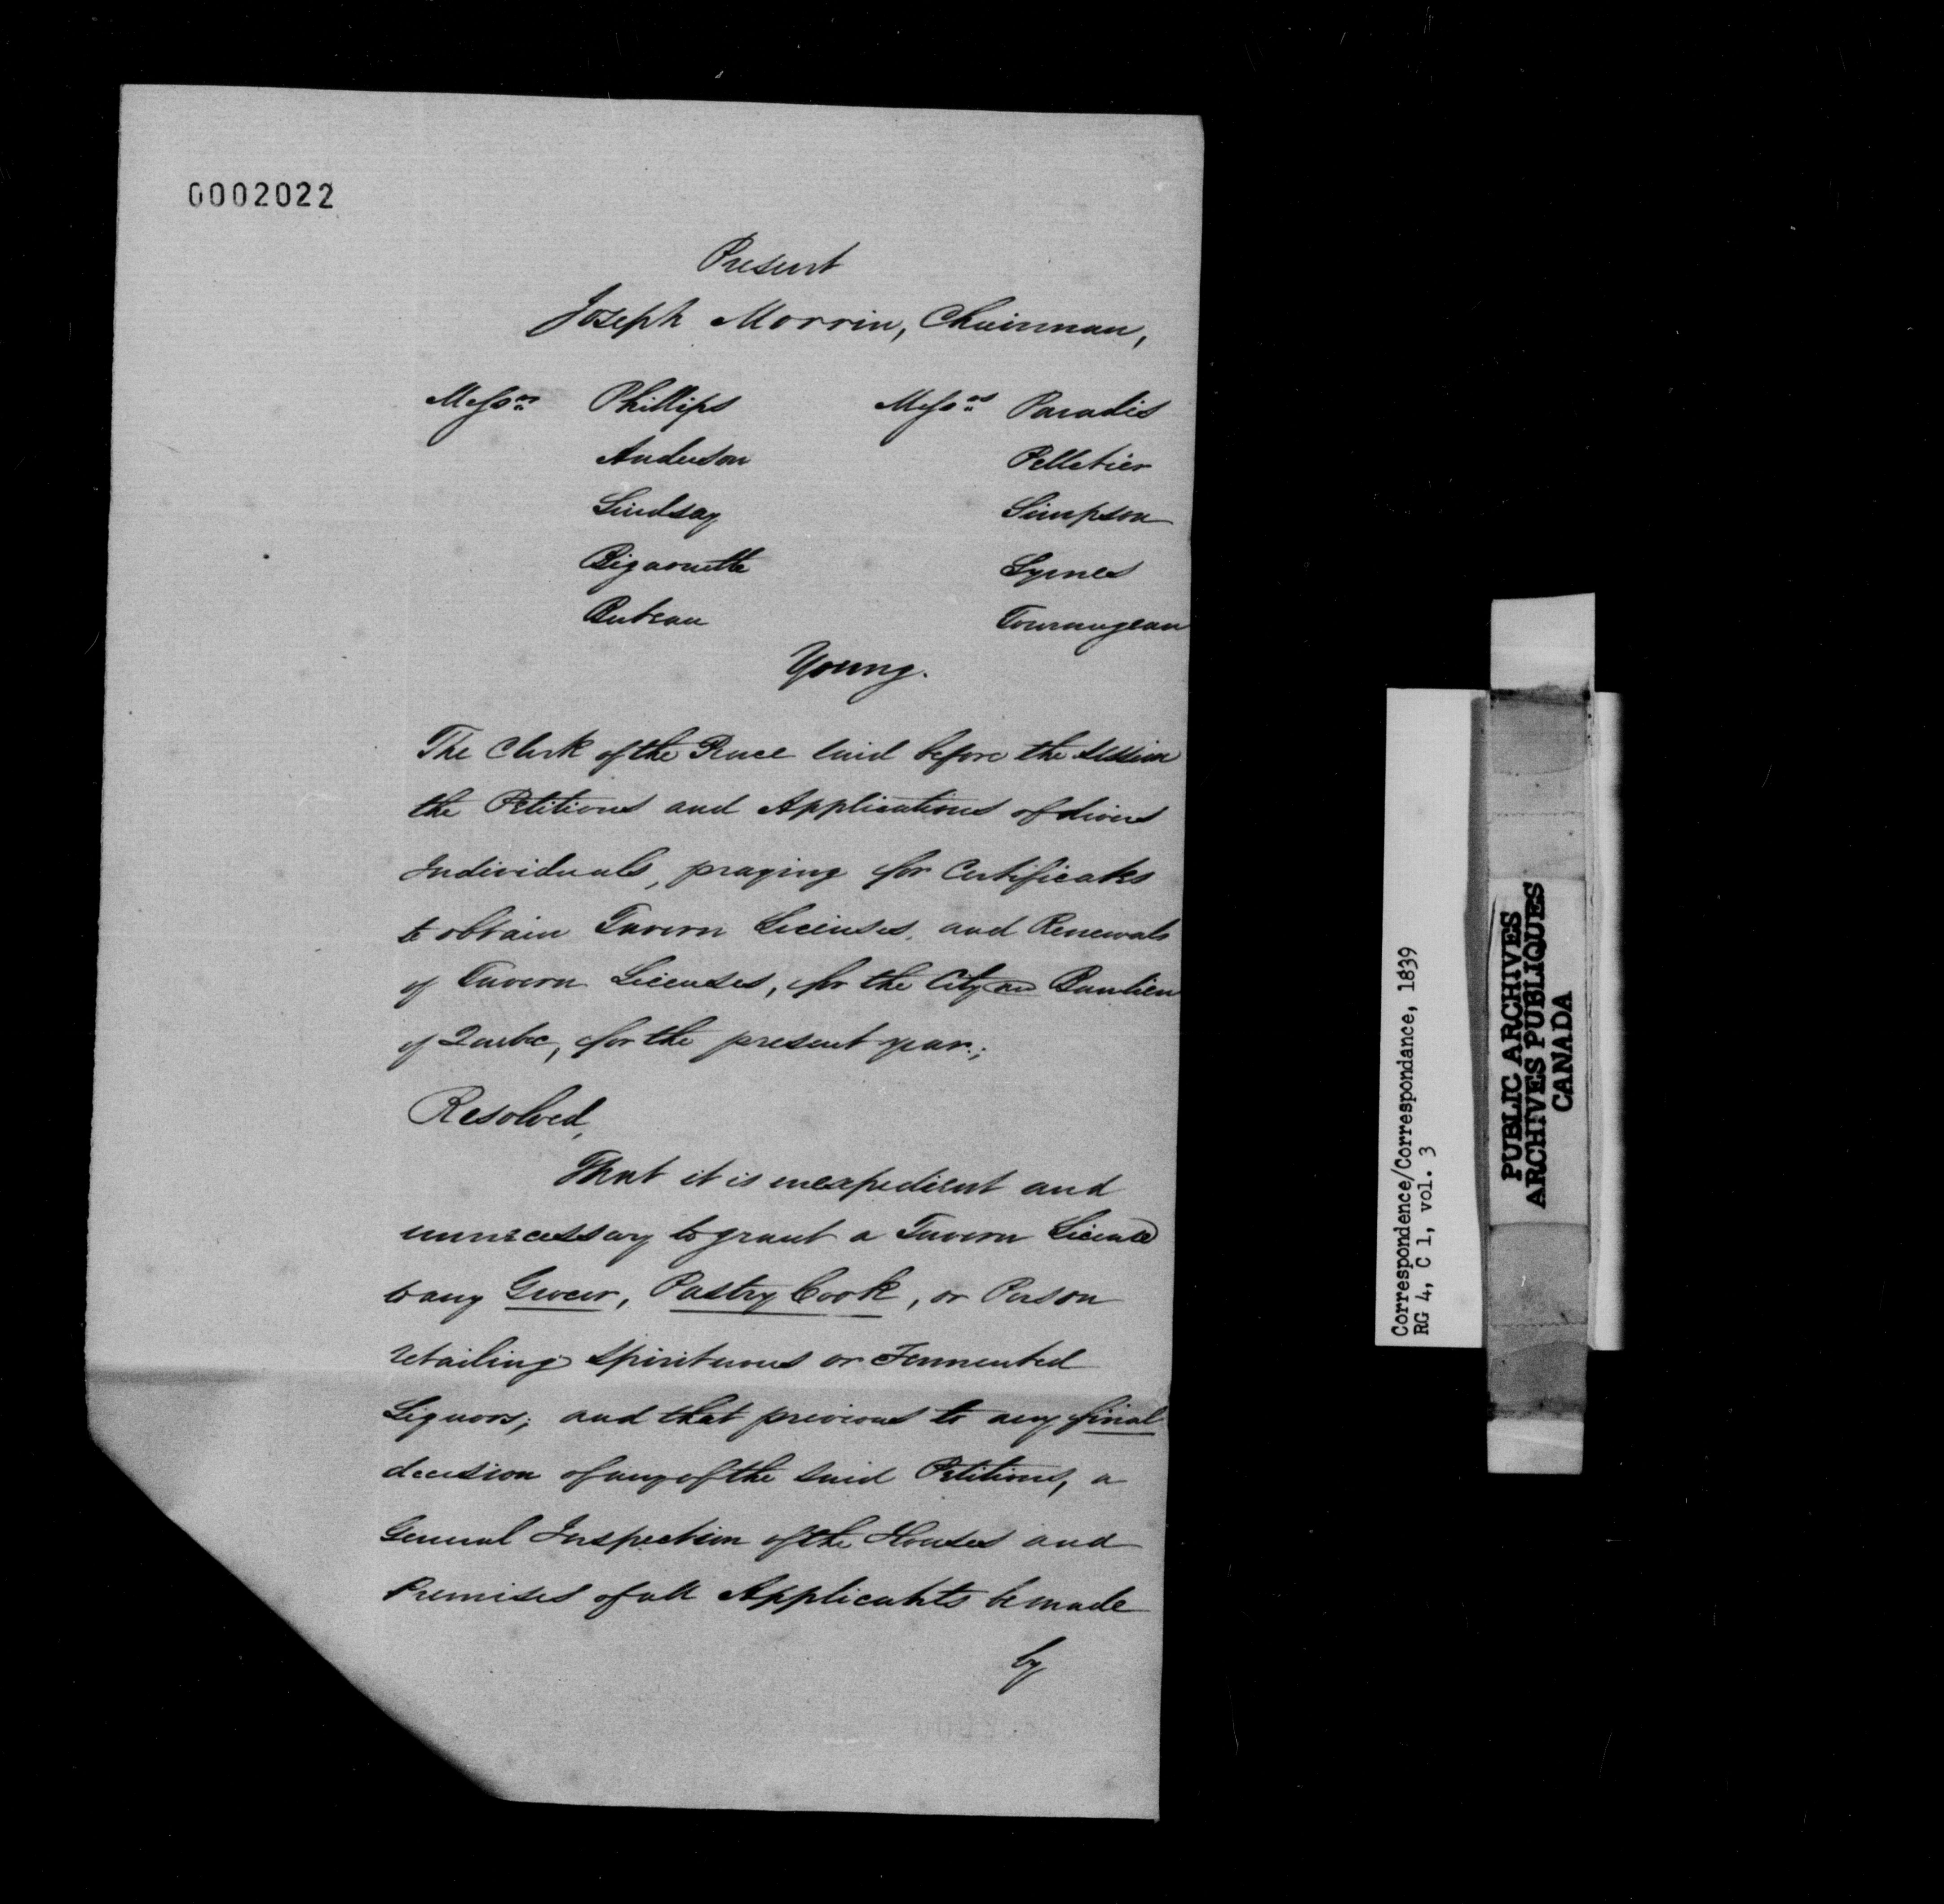 0002022
Present
Joseph Morrin, Chairman,
Messrs Phillips Messrs Paradis
Anderson Pelletier
Lindsay Simpson
Bigaouette Symes
Buteau Tourangeau
Young.
The Clerk of the Peace laid before the Session
the Petitions and Applications of divers
Individuals, praying for Certificates
to obtain Tavern Licenses, and Renewals
of Tavern Licenses, for the City and Banlieu
of Quebec, for the present year;
Resolved,
That it is inexpedient and
unnecessary to grant a Tavern License
to any Grocer, Pastry Cook, or Person
retailing Spirituous or Fermented
Liquors; and that previous to any final
decision of any of the said Petitions, a
General Inspection of the Houses and
Premises of all Applicants be made
by
Correspondence/Correspondance, 1839
RG 4, C 1, vol. 3
PUBLIC ARCHIVES
ARCHIVES PUBLIQUES
CANADA